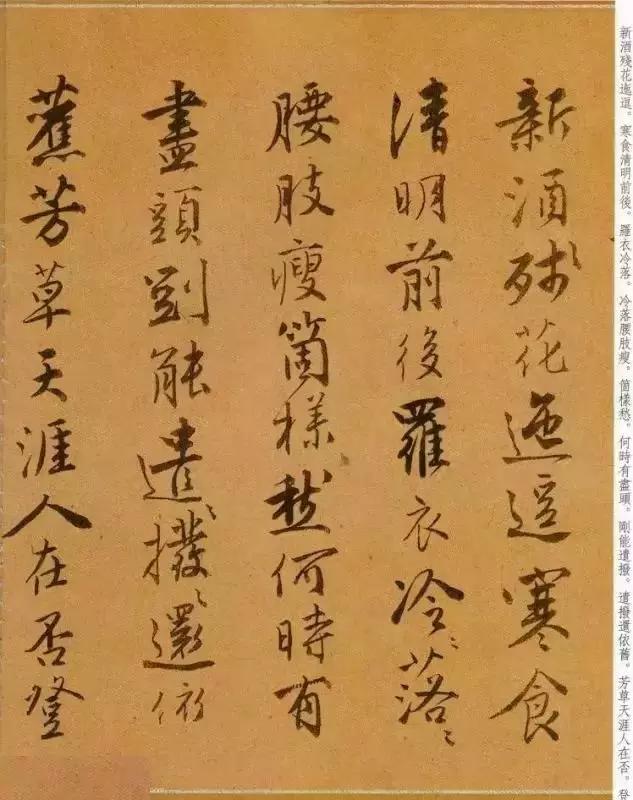 新酒殘花迤逗。寒食清明前後。羅衣冷落。冷落腰肢瘦。箇樣愁。何時有盡頭。剛能遣撥。遣撥還依舊。芳草天涯人在否。登
新酒殘花迤逗寒食
清明前後羅衣冷々落々
腰肢瘦箇樣愁何時有
盡頭剛能遣々撥々還依
舊芳草天涯人在否登